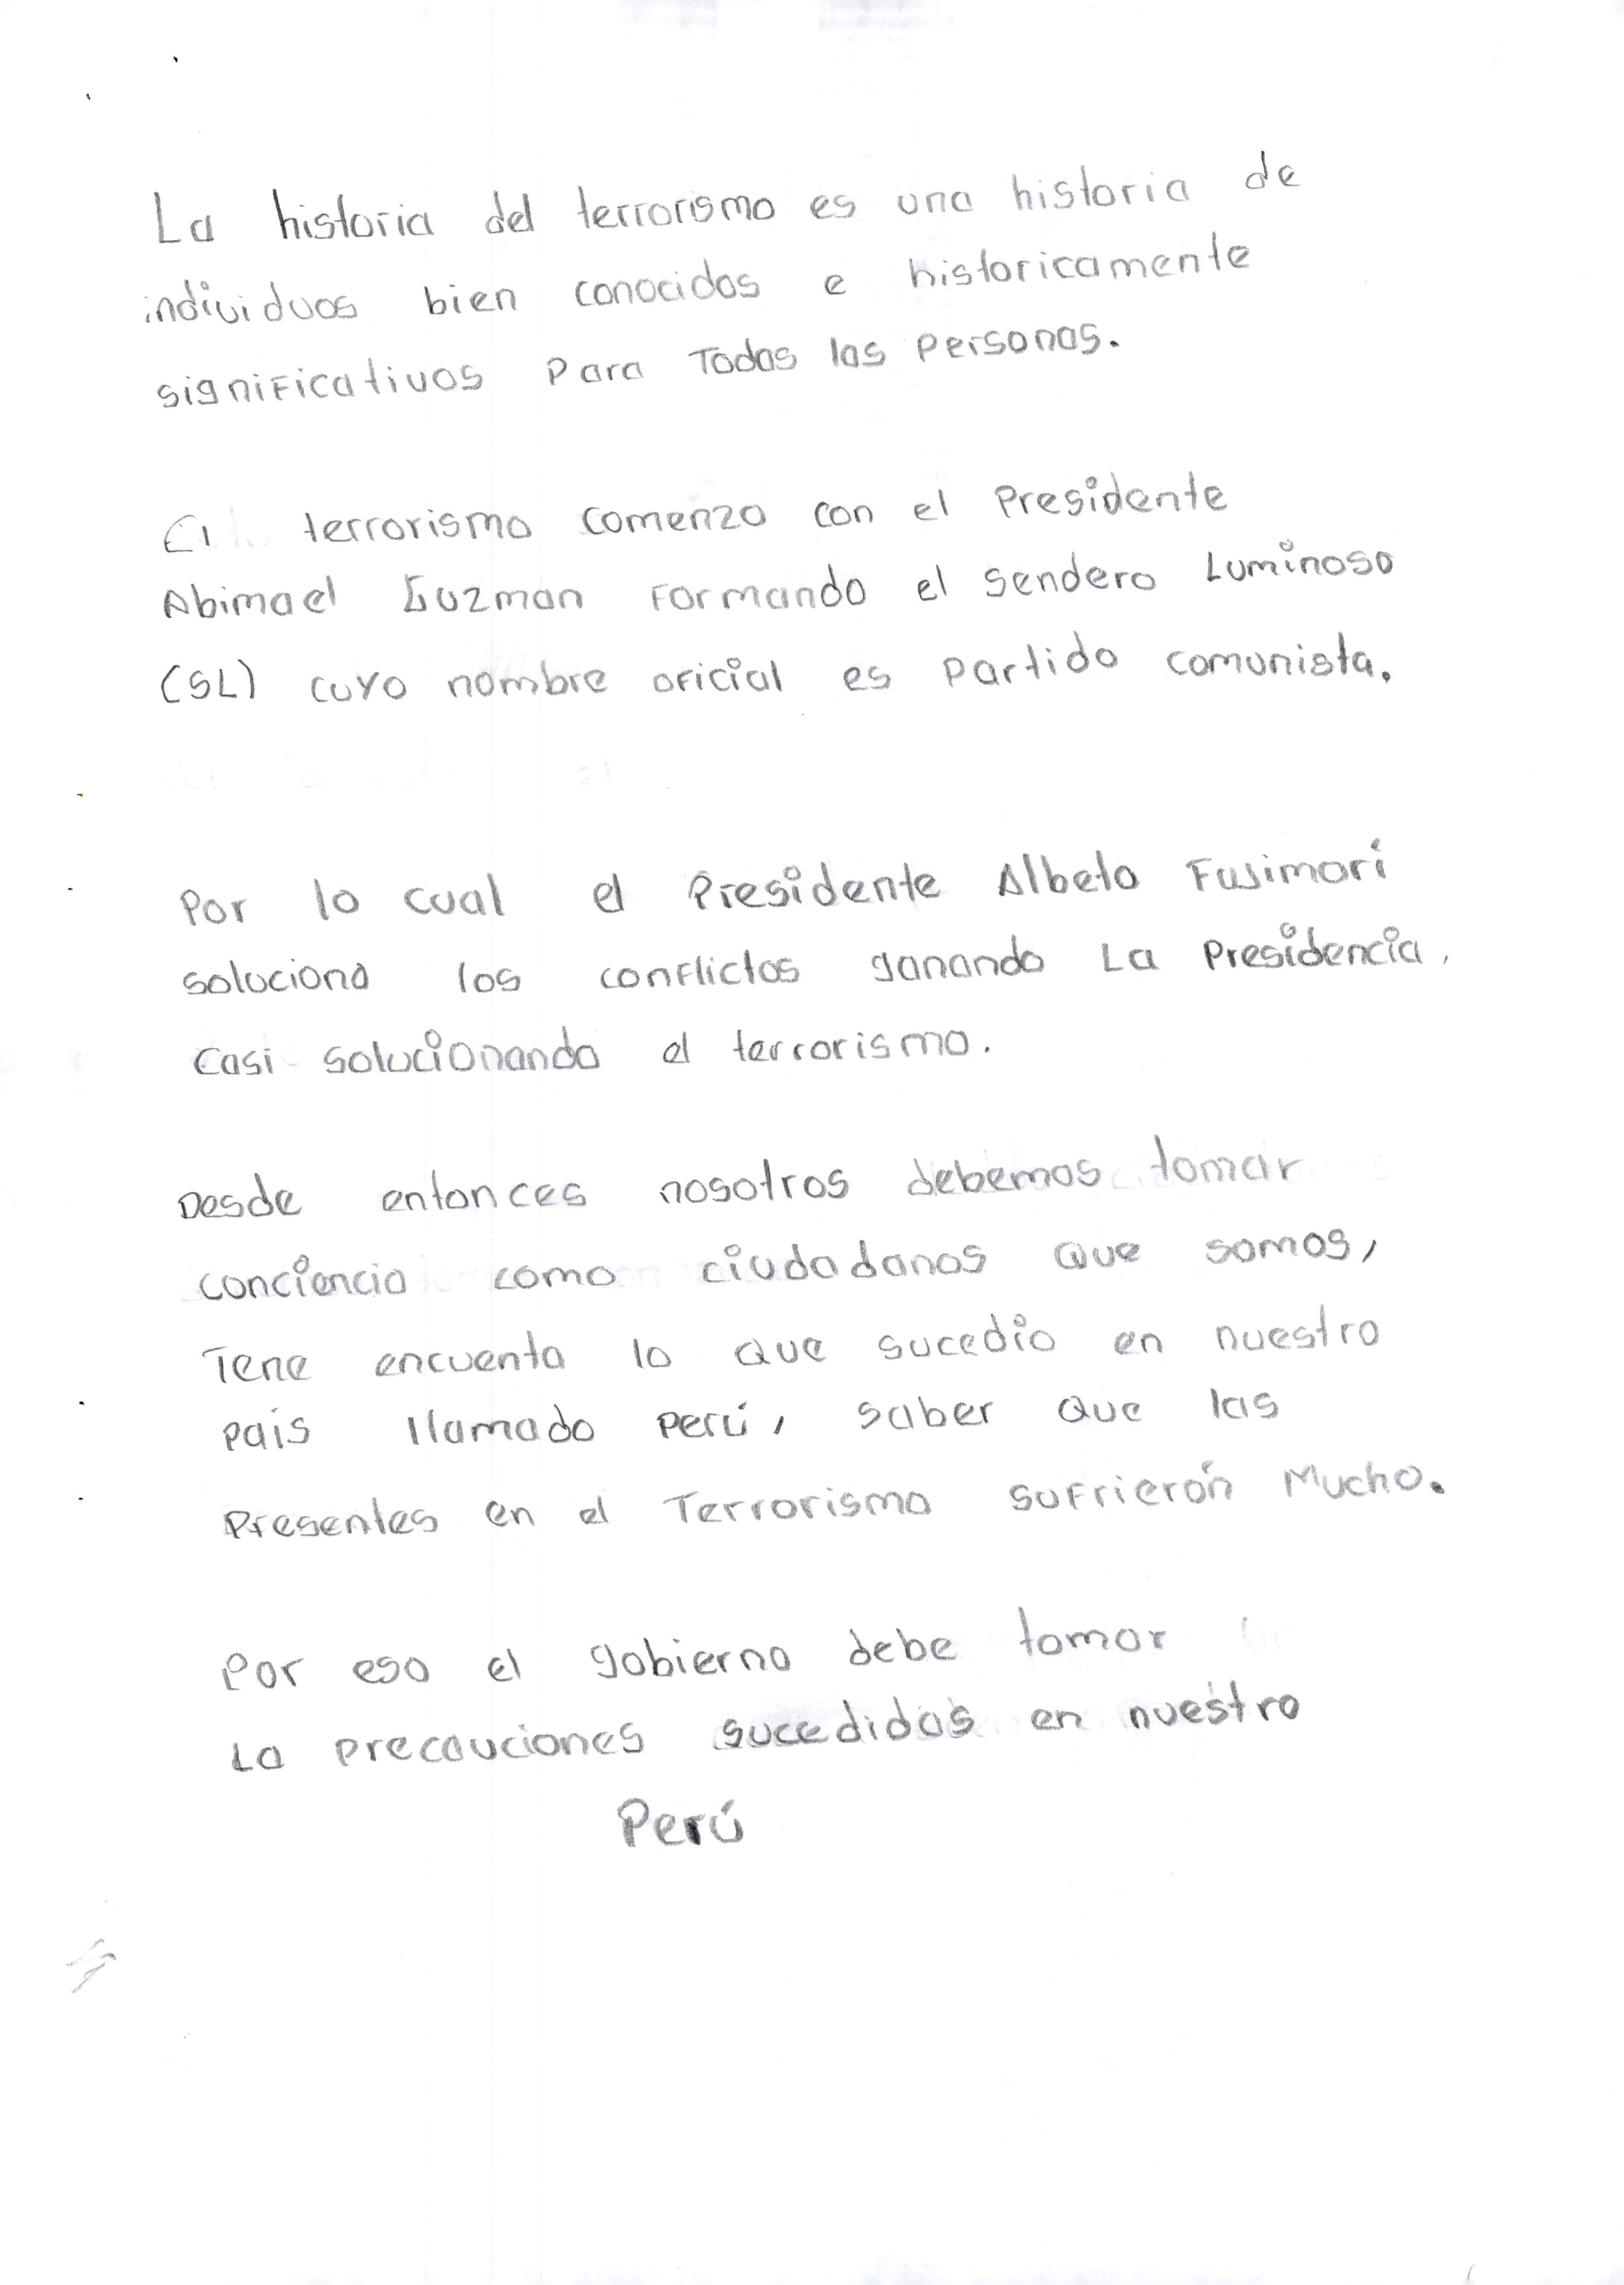 La historia del terrorismo es una historia de
individuos bien conocidos e historicamente
significativos Para Todas las Personas.
El terrorismo comenzo con el Presidente
Abimael Guzman Formando el Sendero Luminoso
(SL) cuyo nombre oficial es Partido comunista.
Por lo cual el Presidente Albeto Fusimorí
soluciono los conflictos ganando La Presidencia,
Casi solucionando el terrorismo.
Desde entonces nosotros debemos tomar
conciencia como ciudadanos que somos,
Tene encuenta lo que sucedio en nuestro
pais llamado perú, saber que las
Presentes en el Terrorismo sufrierón Mucho.
Por eso el gobierno debe tomar
La precauciones sucedidas en nuestro
Perú